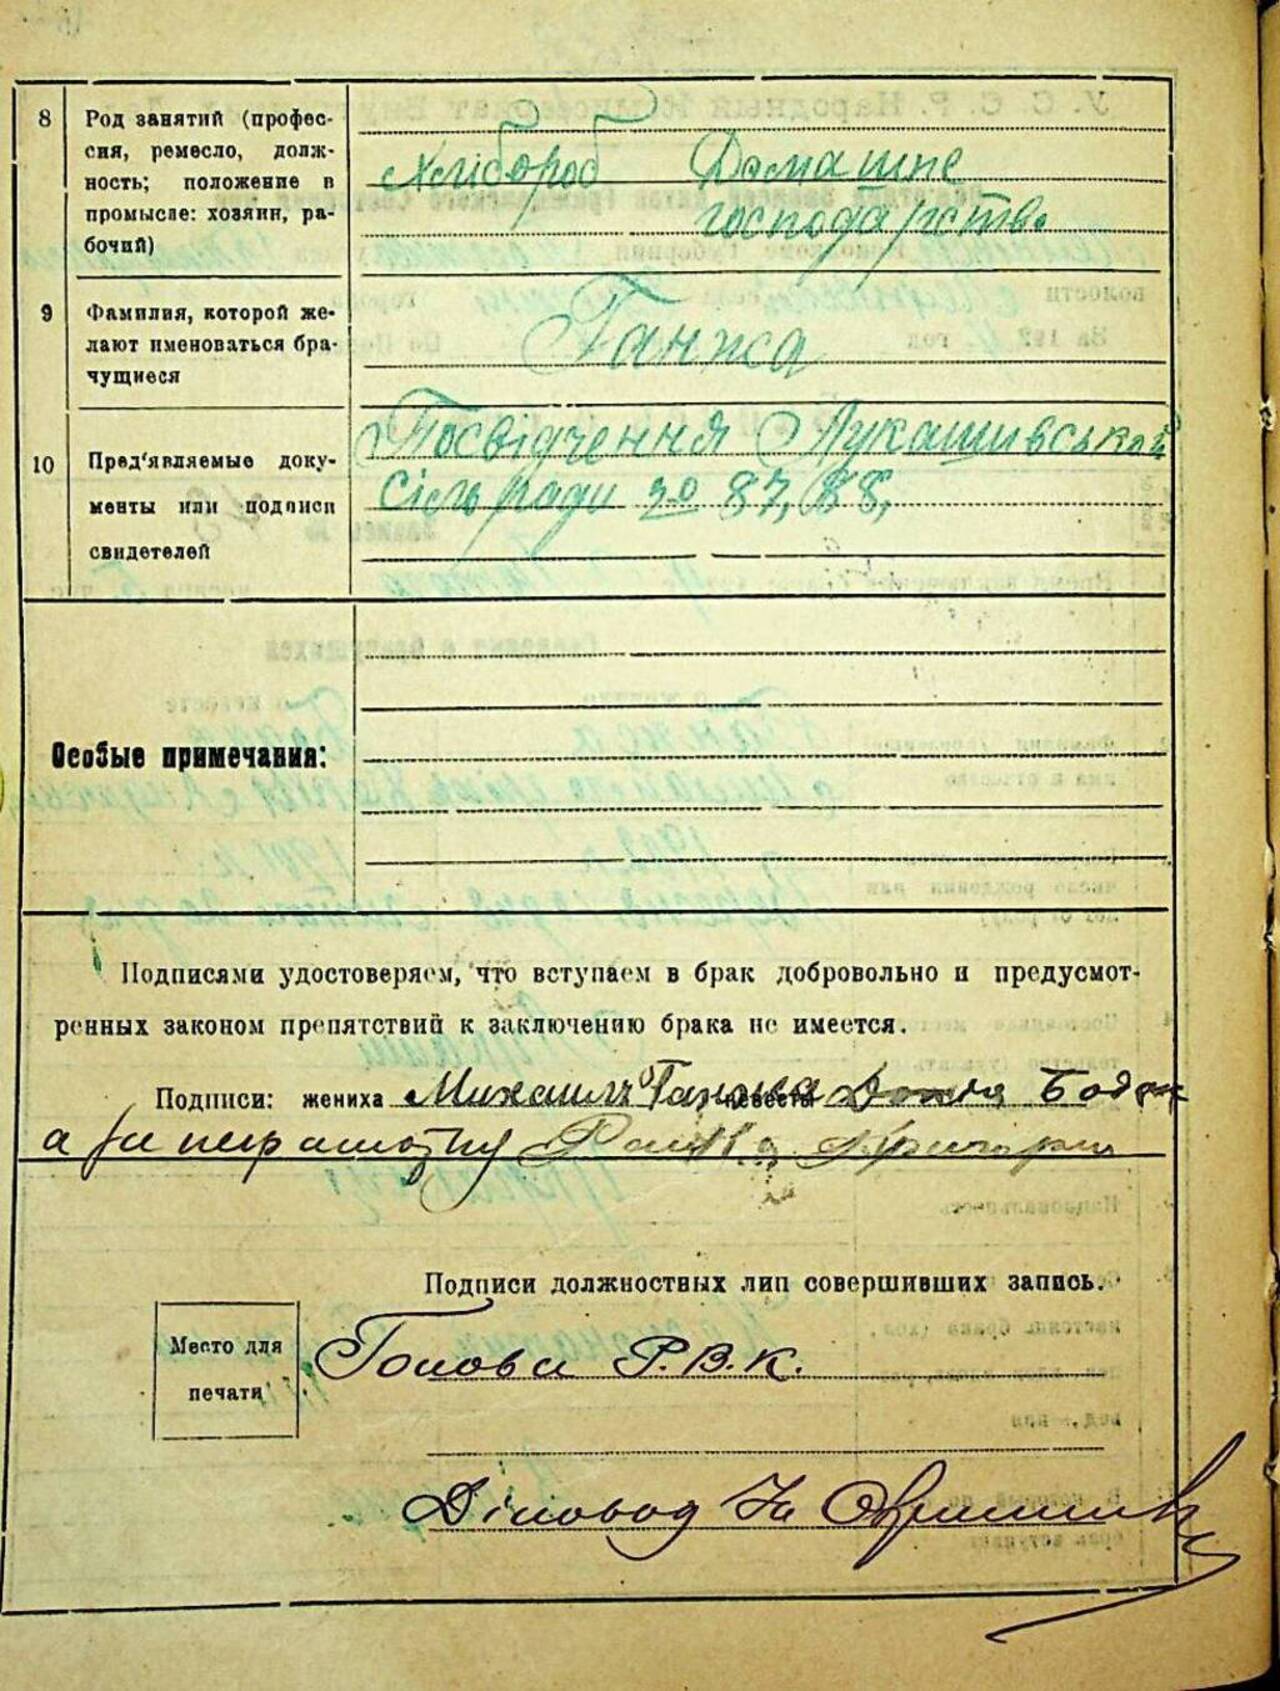 8 Род занятий (профес-
сия, ремесло, долж-
ность; положение в
промысле: хозяин, ра-
бочий)
Хлібороб Домашнє
господарство
9 Фамилия, которой же-
лают именоваться бра-
чущиеся
Ганжа
10 Пред'являемые доку-
менты или подписи
свидетелей
Посвідчення Лукашивської
Сільради 87, 88,
Особые примечания:
Подписями удостоверяем, что вступаем в брак добровольно и предусмот-
ренных законом препятствий к заключению брака не имеется.
Подписи: жениха Михаил Ганжа невесты
а за неграмотну
Подписи должностных лиц совершивших запись.
Место для
печати
Голова Р.В.К.
Діловод